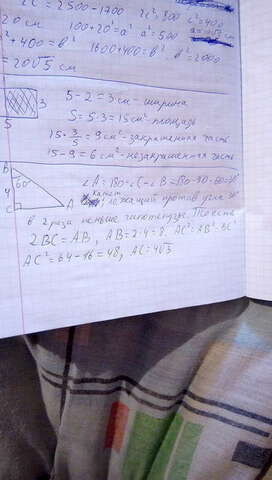 2c² = 2500 - 1700   2c² = 800   c² = 400
20 см   100 + 20² = a²   a² = 500
² + 400 = b²   1600 + 400 = b²   b² = 2000
= 20√5 см
3
5
5 - 2 = 3 см - ширина
S = 5 · 3 = 15 см² - площадь
15 · 3/5 = 9 см² - закрашенная часть
15 - 9 = 6 см² - незакрашенная часть
B
60°
4
C
A
∠A = 180 - ∠C - ∠B = 180 - 90 - 60 = 30°
Катет
лежащий против угла 30°
в 2 раза меньше гипотенузы. То есть
2BC = AB, AB = 2 · 4 = 8. AC² = AB² - BC²
AC² = 64 - 16 = 48, AC = 4√3